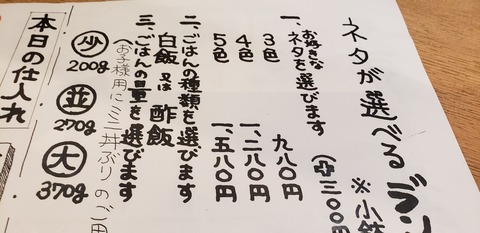 ネタが選べるラン
※小鉢
一、お好きな
ネタを選びます
(㊥三〇〇円
3色 九八〇円
4色 一、二八〇円
5色 一、五八〇円
二、ごはんの種類を選びます
白飯 又は 酢飯
三、ごはんの量を選びます
(お子様用にミニ丼ぶりのご用
少 200g
並 270g
大 370g
本日の仕入れ